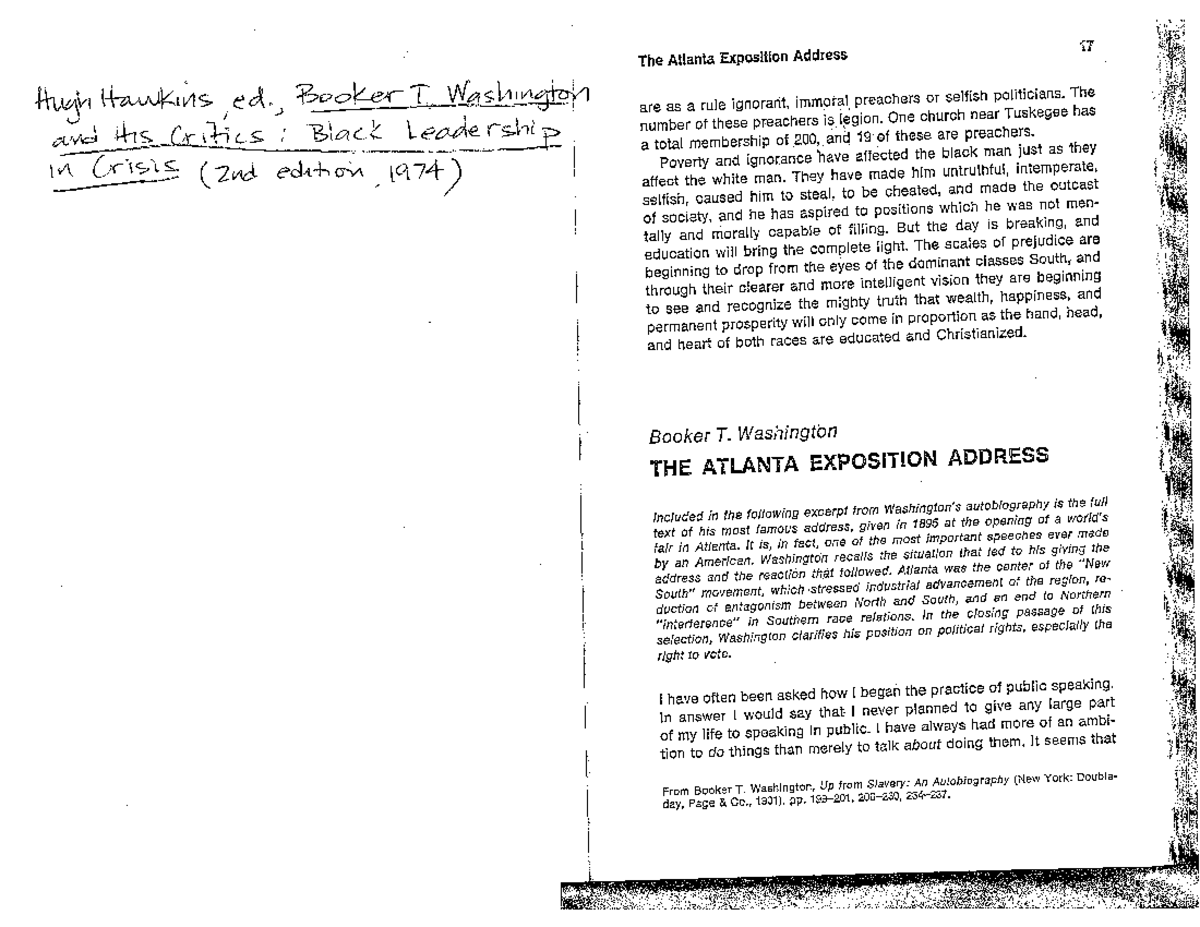 Hugh Hawkins, ed., Booker T. Washington
and His Critics: Black Leadership
in Crisis (2nd edition, 1974)
The Atlanta Exposition Address
17
are as a rule ignorant, immoral preachers or selfish politicians. The
number of these preachers is legion. One church near Tuskegee has
a total membership of 200, and 19 of these are preachers.
Poverty and ignorance have affected the black man just as they
affect the white man. They have made him untruthful, intemperate,
selfish, caused him to steal, to be cheated, and made the outcast
of society, and he has aspired to positions which he was not men-
tally and morally capable of filling. But the day is breaking, and
education will bring the complete light. The scales of prejudice are
beginning to drop from the eyes of the dominant classes South, and
through their clearer and more intelligent vision they are beginning
to see and recognize the mighty truth that wealth, happiness, and
permanent prosperity will only come in proportion as the hand, head,
and heart of both races are educated and Christianized.
Booker T. Washington
THE ATLANTA EXPOSITION ADDRESS
Included in the following excerpt from Washington's autobiography is the full
text of his most famous address, given in 1895 at the opening of a world's
fair in Atlanta. It is, in fact, one of the most important speeches ever made
by an American. Washington recalls the situation that led to his giving the
address and the reaction that followed. Atlanta was the center of the "New
South" movement, which stressed industrial advancement of the region, re-
duction of antagonism between North and South, and an end to Northern
"interference" in Southern race relations. In the closing passage of this
selection, Washington clarifies his position on political rights, especially the
right to vote.
I have often been asked how I began the practice of public speaking.
In answer I would say that I never planned to give any large part
of my life to speaking in public. I have always had more of an ambi-
tion to do things than merely to talk about doing them. It seems that
From Booker T. Washington, Up from Slavery: An Autobiography (New York: Double-
day, Page & Co., 1901), pp. 199–201, 206–230, 234–237.